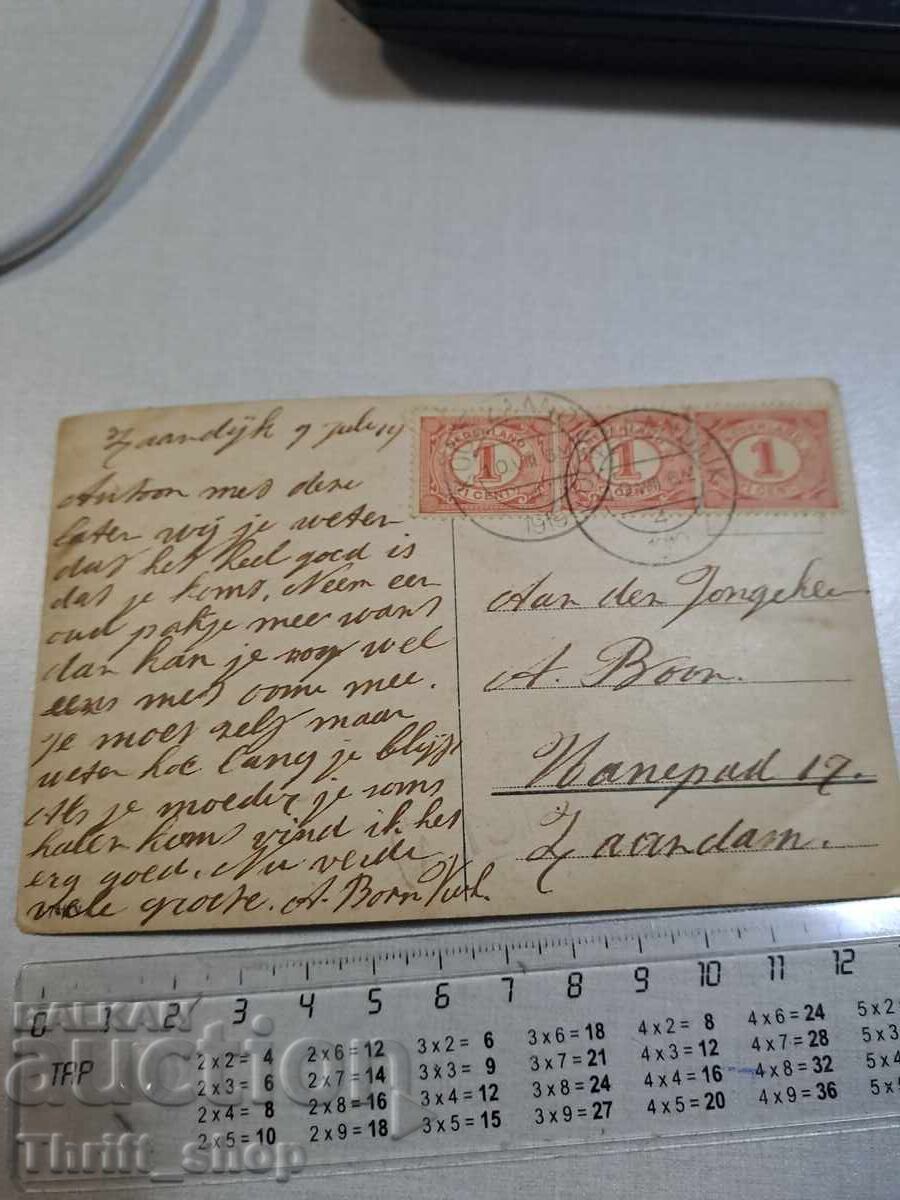 Zaandijk 9 Juli 19
Antoon met deze
laten wij je weten
dat het heel goed is
dat je komt. Neem een
oud pakje mee want
dan kan je nog wel
eens met oome mee.
Je moet zelf maar
weten hoe lang je blijft
Als je moeder je soms
halen komt vind ik het
erg goed. Nu verder
vele groete. A. Boon
NEDERLAND
1
1 CENT
NEDERLAND
1
CENT
NEDERLAND
1
CENT
1919
2
Aan den Jongeheer
A. Boon.
17.
Zaandam.
0 1 2 3 4 5 6 7 8 9 10 11 12
TAP
2 x 2 = 4
2 x 3 = 6
2 x 4 = 8
2 x 5 = 10
2 x 6 = 12
2 x 7 = 14
2 x 8 = 16
2 x 9 = 18
3 x 2 = 6
3 x 3 = 9
3 x 4 = 12
3 x 5 = 15
3 x 6 = 18
3 x 7 = 21
3 x 8 = 24
3 x 9 = 27
4 x 2 = 8
4 x 3 = 12
4 x 4 = 16
4 x 5 = 20
4 x 6 = 24
4 x 7 = 28
4 x 8 = 32
4 x 9 = 36
5 x 2
5 x 3
5 x 4
5 x
BALKAN
auction
Thrift_shop